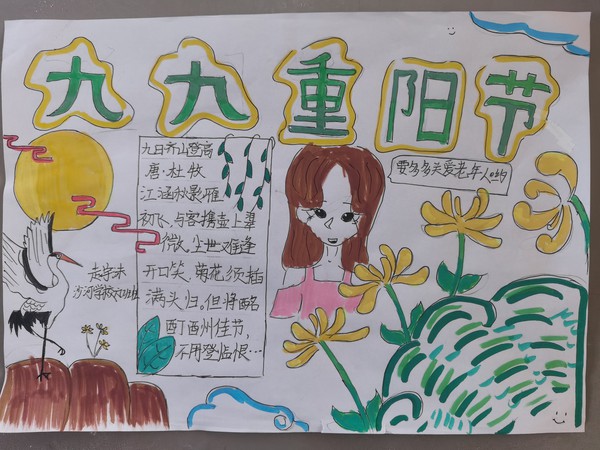 九九重阳节
九日齐山登高
唐·杜牧
江涵秋影雁
初飞、与客携壶上翠
微,尘世难逢
开口笑,菊花须插
满头归。但将酩
酊酬佳节,
不用登临恨…
要多多关爱老年人哟
沙河学校